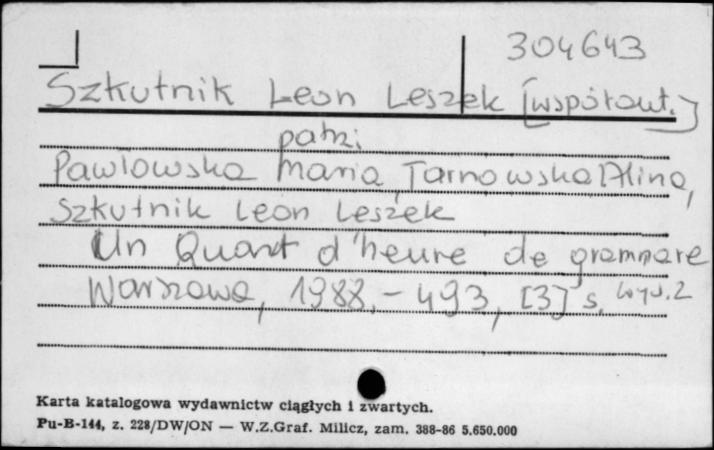 304643
Szkutnik Leon Leszek [współaut.]
patrz:
Pawłowska Maria, Tarnowska Alina,
Szkutnik Leon Leszek
Un Quart d'heure de grammare
Warszawa, 1988. - 493, [3] s. wyd. 2
Karta katalogowa wydawnictw ciągłych i zwartych.
Pu-B-144, z. 228/DW/ON — W.Z.Graf. Milicz, zam. 388-86 5.650.000